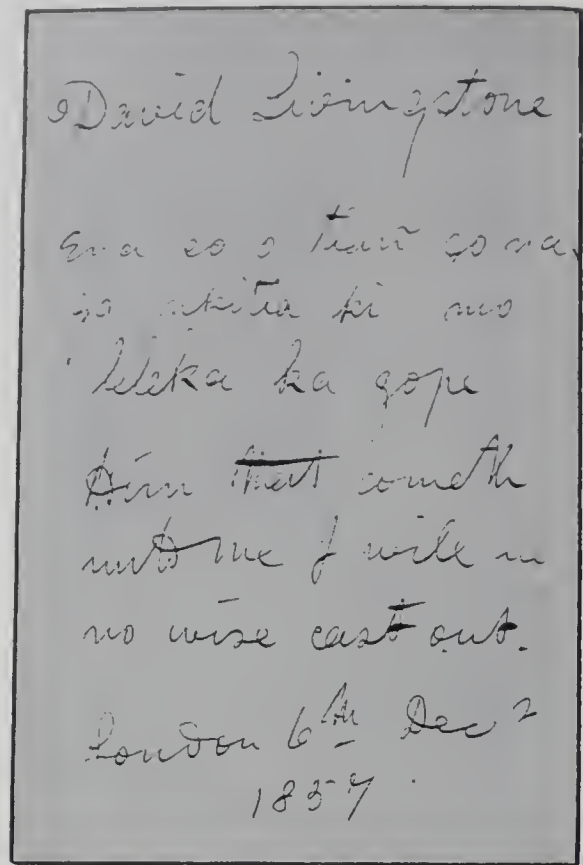 David Livingstone
Ena eo o tlañ go na,
ki
leleka ka gope
Him that cometh
unto me I will in
no wise cast out.
London 6th Decr
1857